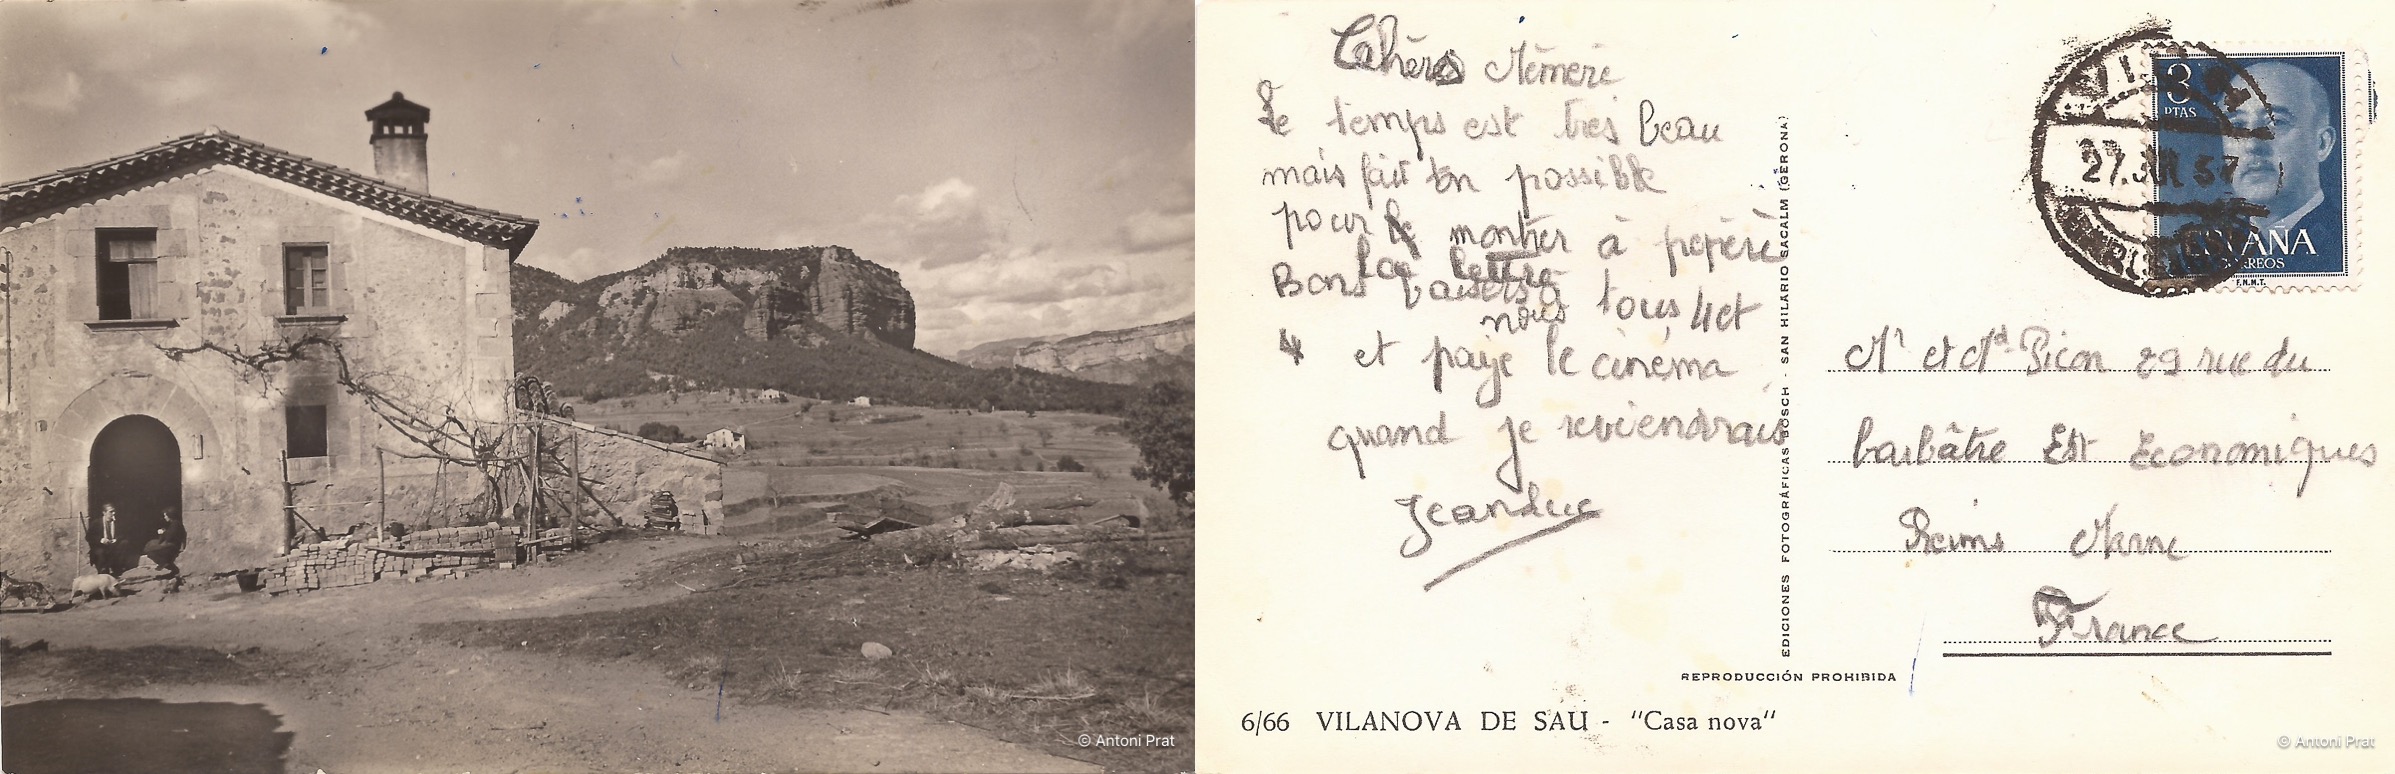 © Antoni Prat
Cahères Mémère
Le temps est très beau
mais fait ton possible
pour le montrer à pépère
la lettre
Bons baisers à
nous tous 4 et
4 et paije le cinéma
quand je reviendrais
Jeanluc
EDICIONES FOTOGRÁFICAS BOSCH - SAN HILARIO SACALM (GERONA)
REPRODUCCIÓN PROHIBIDA
6/66 VILANOVA DE SAU - "Casa nova"
3
PTAS
27. 57
ESPAÑA
CORREOS
F.N.M.T.
Mr et Md Picon 29 rue du
barbâtre Est Economiques
Reims Marne
France
© Antoni Prat